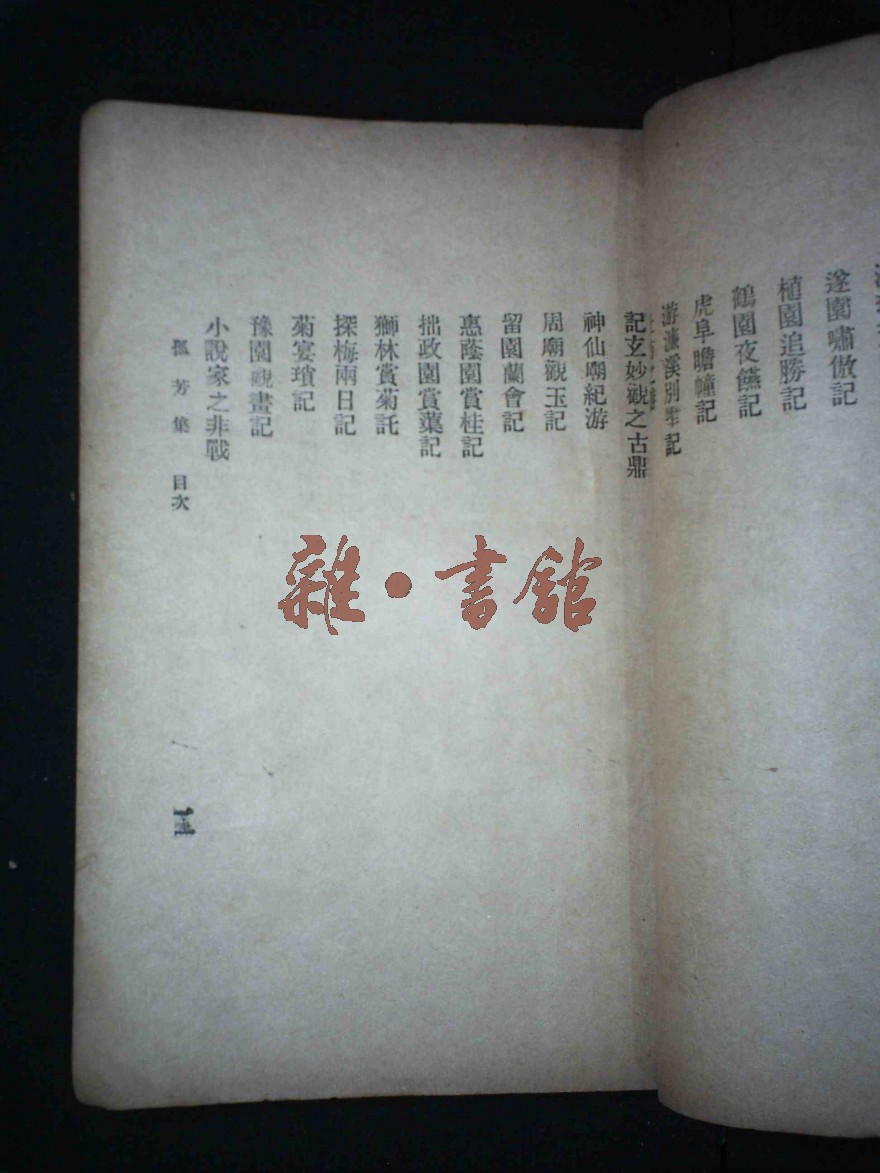 遂園嘯傲記
植園追勝記
鶴園夜讌記
虎阜瞻幢記
游濂溪別墅記
記玄妙觀之古鼎
神仙廟紀游
周廟觀玉記
留園蘭會記
惠蔭園賞桂記
拙政園賞葉記
獅林賞菊託
探梅兩日記
菊宴瑣記
豫園觀畫記
小說家之非戰
孤芳集 目次
雜·書館